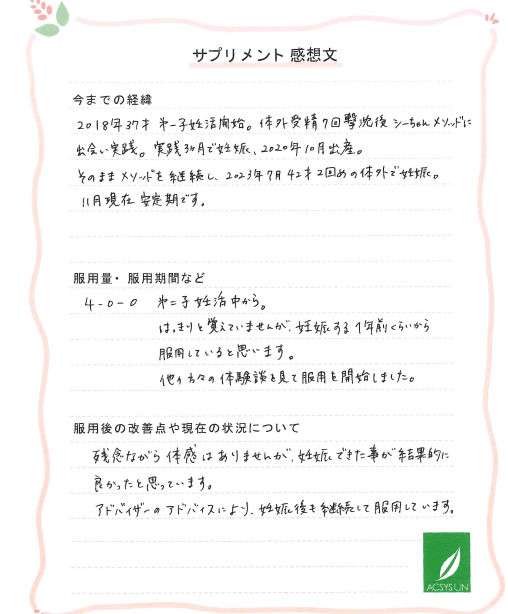 サプリメント 感想文
今までの経緯
2018年37才 第一子妊活開始。体外受精7回撃沈後 シーちゃんメソッドに
出会い実践。実践3ヶ月で妊娠、2020年10月出産。
そのままメソッドを継続し、2023年7月42才2回めの体外で妊娠。
11月現在 安定期です。
服用量・服用期間など
4-0-0 第二子妊活中から。
はっきりと覚えていませんが、妊娠する1年前くらいから
服用していると思います。
他の方々の体験談を見て服用を開始しました。
服用後の改善点や現在の状況について
残念ながら体感はありませんが、妊娠できた事が結果的に
良かったと思っています。
アドバイザーのアドバイスにより、妊娠後も継続して服用しています。
ACSYSUN